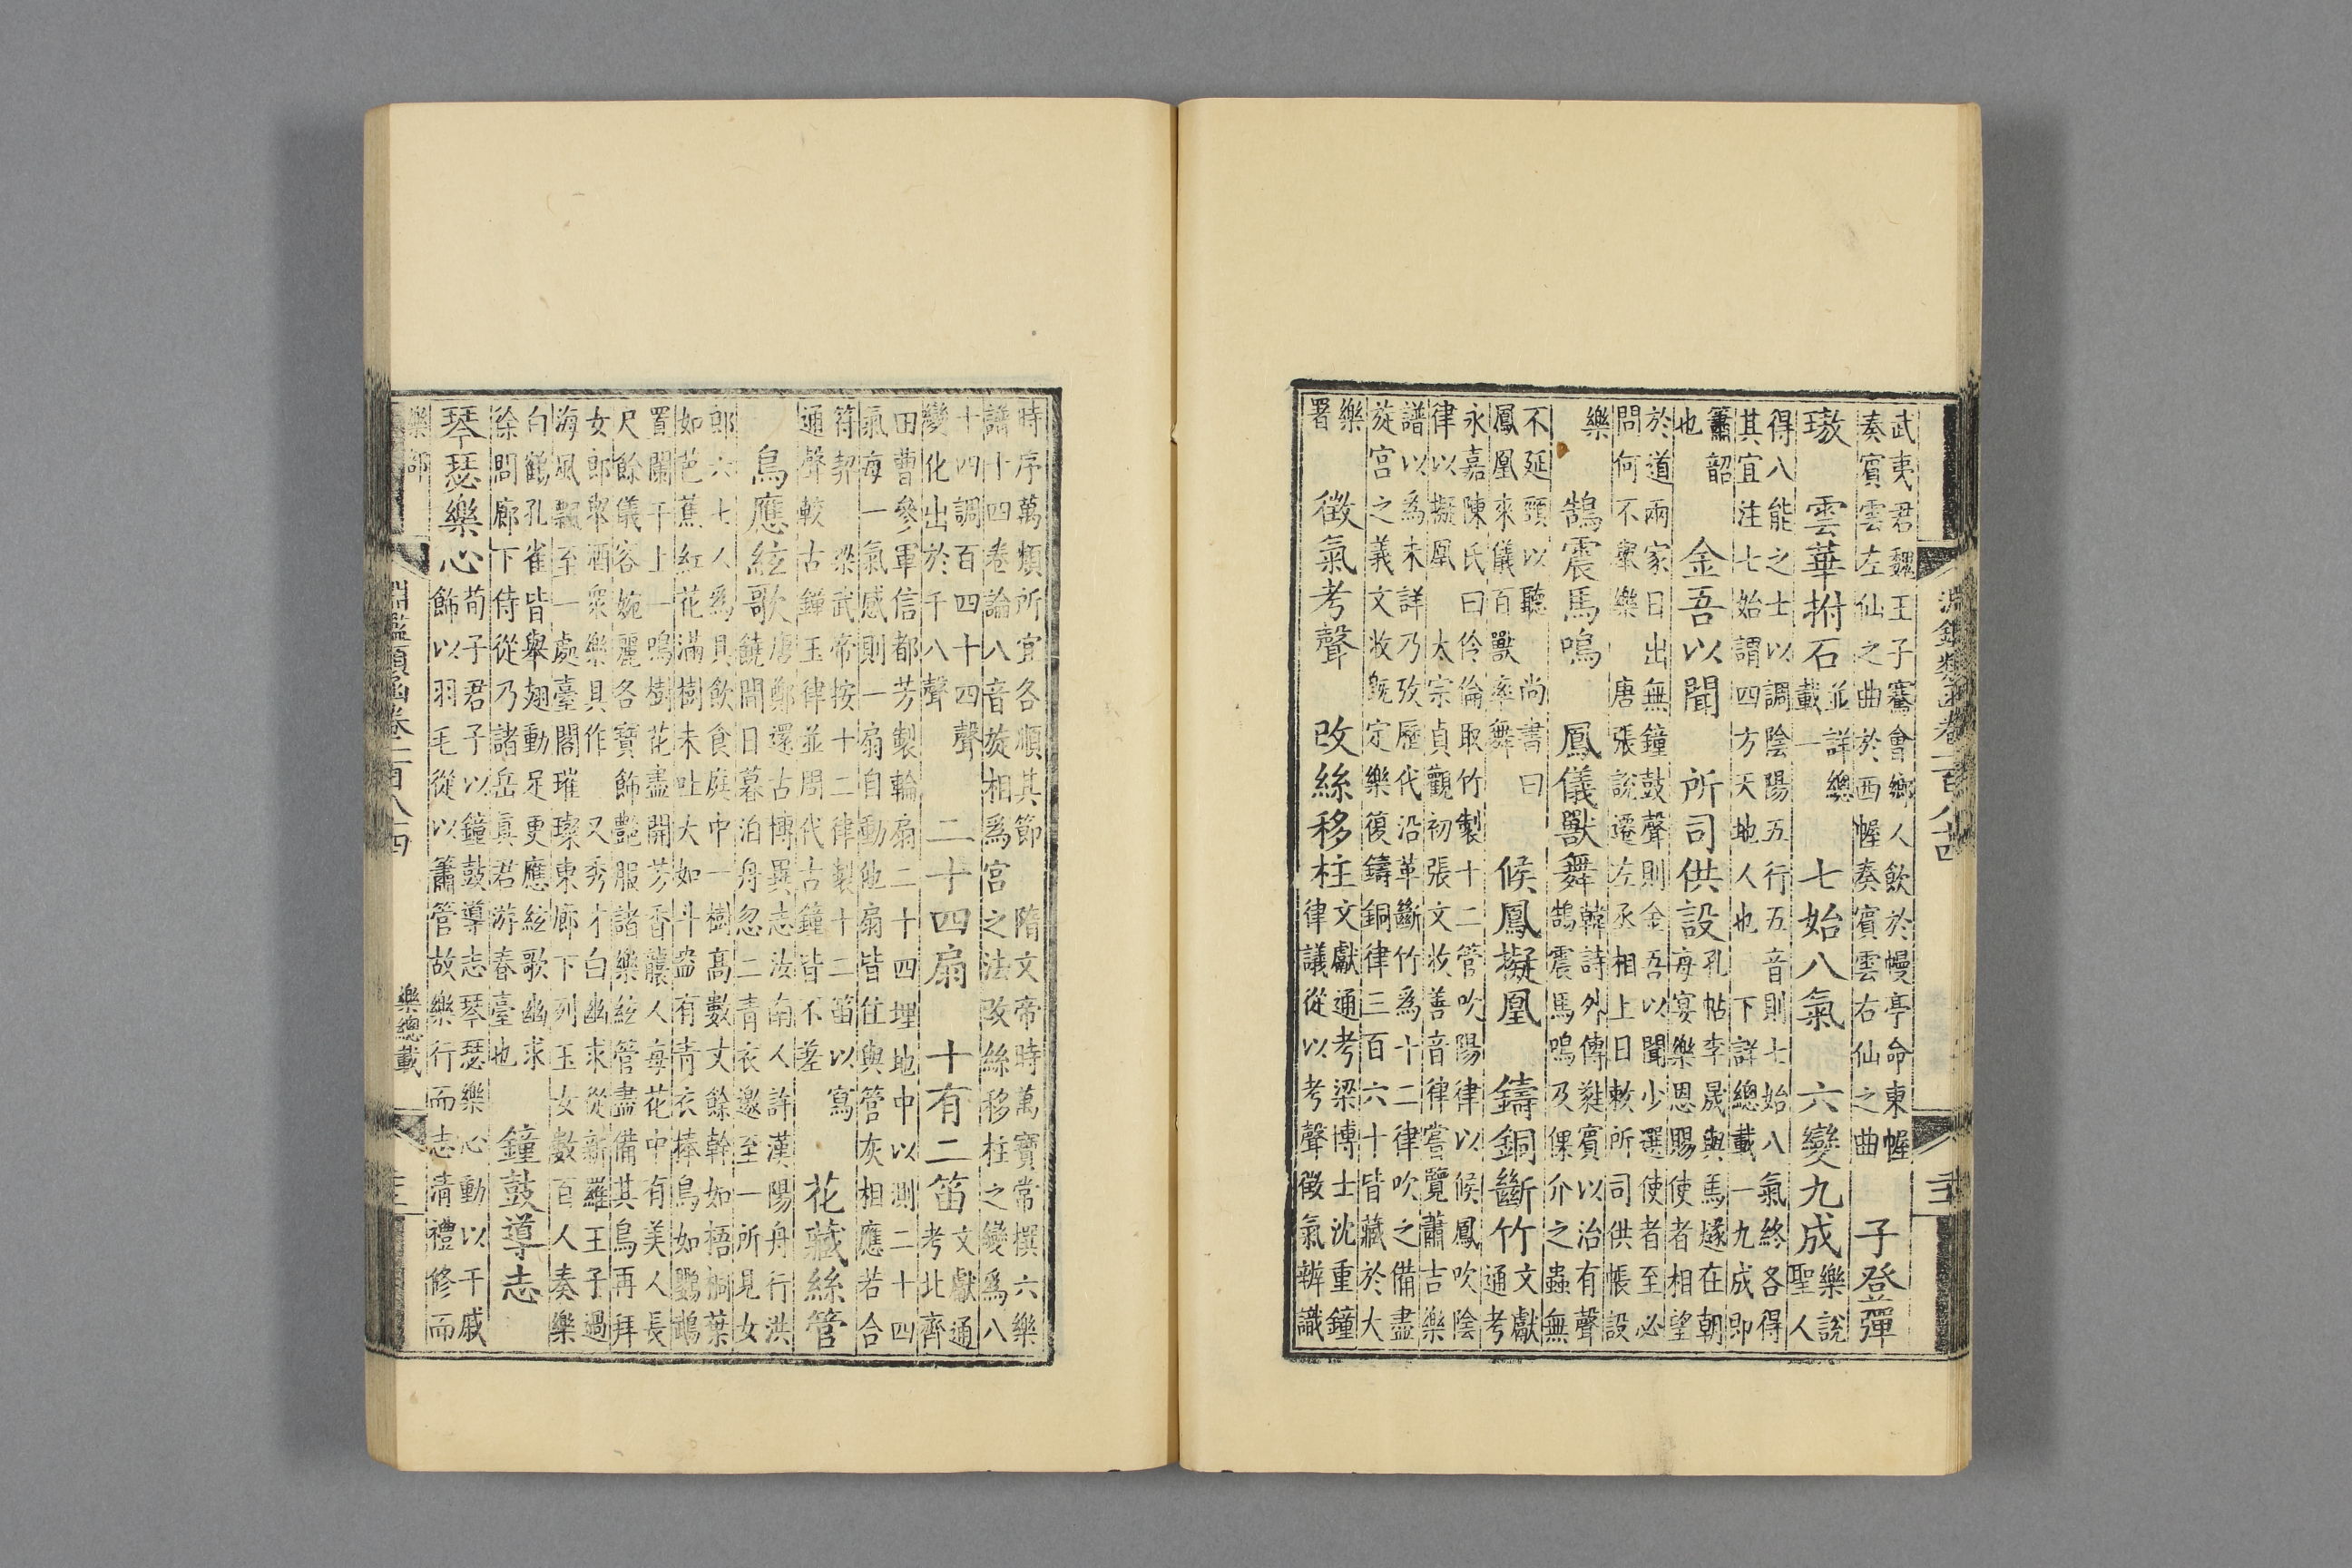 淵鑑類函卷一百八十四
武夷君魏王子騫會鄉人飲於幔亭命東幄
奏賓雲左仙之曲於西幄奏賓雲右仙之曲
子登彈
璈 雲華拊石
並詳總
載一
七始八氣 六變九成
樂說
聖人
得八能之士以調陰陽五行五音則七始八氣終各得
其宜注七始謂四方天地人也 下詳總載一九成即
簫韶
也
金吾以聞 所司供設
孔帖李晟與馬燧在朝
每宴樂恩賜使者相望
於道兩家日出無鐘鼓聲則金吾以聞少選使者至必
問何不舉樂 唐張說遷左丞相上日敕所司供帳設
樂
鵠震馬鳴 鳳儀獸舞
韓詩外傳蕤賓以治有聲
鵠震馬鳴及倮介之蟲無
不延頸以聽 尚書曰
鳳凰來儀百獸率舞
候鳳擬凰 鑄銅斷竹
文獻
通考
永嘉陳氏曰伶倫取竹製十二管吹陽律以候鳳吹陰
律以擬凰 太宗貞觀初張文收善音律嘗覽蕭吉樂
譜以為未詳乃攷歷代沿革斷竹為十二律吹之備盡
旋宮之義文收旣定樂復鑄銅律三百六十皆藏於大
樂
署
徵氣考聲 改絲移柱
文獻通考梁博士沈重鐘
律議從以考聲徵氣辨識
時序萬類所宜各順其節 隋文帝時萬寶常撰六樂
譜十四卷論八音旋相爲宮之法改絲移柱之變爲八
十四調百四十四聲
變化出於千八聲
二十四扇 十有二笛
文獻通
考北齊
田曹參軍信都芳製輪扇二十四埋地中以測二十四
氣每一氣感則一扇自動他扇皆住與管灰相應若合
符契 梁武帝按十二律製十二笛以寫
通聲較古鐘玉律並周代古鐘皆不差
花藏絲管
鳥應絃歌
唐鄭還古博異志汝南人許漢陽舟行洪
饒間日暮泊舟忽二青衣邀至一所見女
郎六七人爲具飲食庭中一樹高數丈餘幹如梧桐葉
如芭蕉紅花滿樹未吐大如斗盎有青衣捧鳥如鸚鵡
置闌干上一鳴樹花盡開芳香襲人每花中有美人長
尺餘儀容婉麗各寶飾艷服諸樂絃管盡備其鳥再拜
女郎舉酒衆樂具作 又秀才白幽求從新羅王子過
海風飄至一處臺閣璀璨東廊下列玉女數百人奏樂
白鶴孔雀皆舉翅動足更應絃歌幽求
徐問廊下侍從乃諸岳真君游春臺也
鐘鼓導志
琴瑟樂心
荀子君子以鐘鼓導志琴瑟樂心動以干戚
飾以羽毛從以簫管故樂行而志清禮修而
淵鑑類函卷一百八十四 樂總載